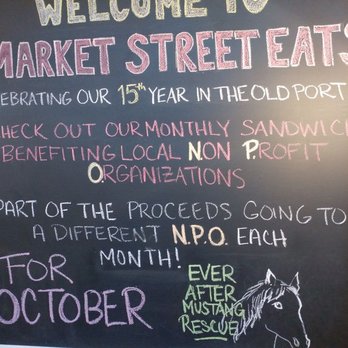 WELCOME TO
MARKET STREET EATS
CELEBRATING OUR 15th YEAR IN THE OLD PORT
CHECK OUT OUR MONTHLY SANDWICH
BENEFITING LOCAL NON PROFIT
ORGANIZATIONS
PART OF THE PROCEEDS GOING TO
A DIFFERENT N.P.O. EACH
MONTH!
FOR
OCTOBER
EVER
AFTER
MUSTANG
RESCUE